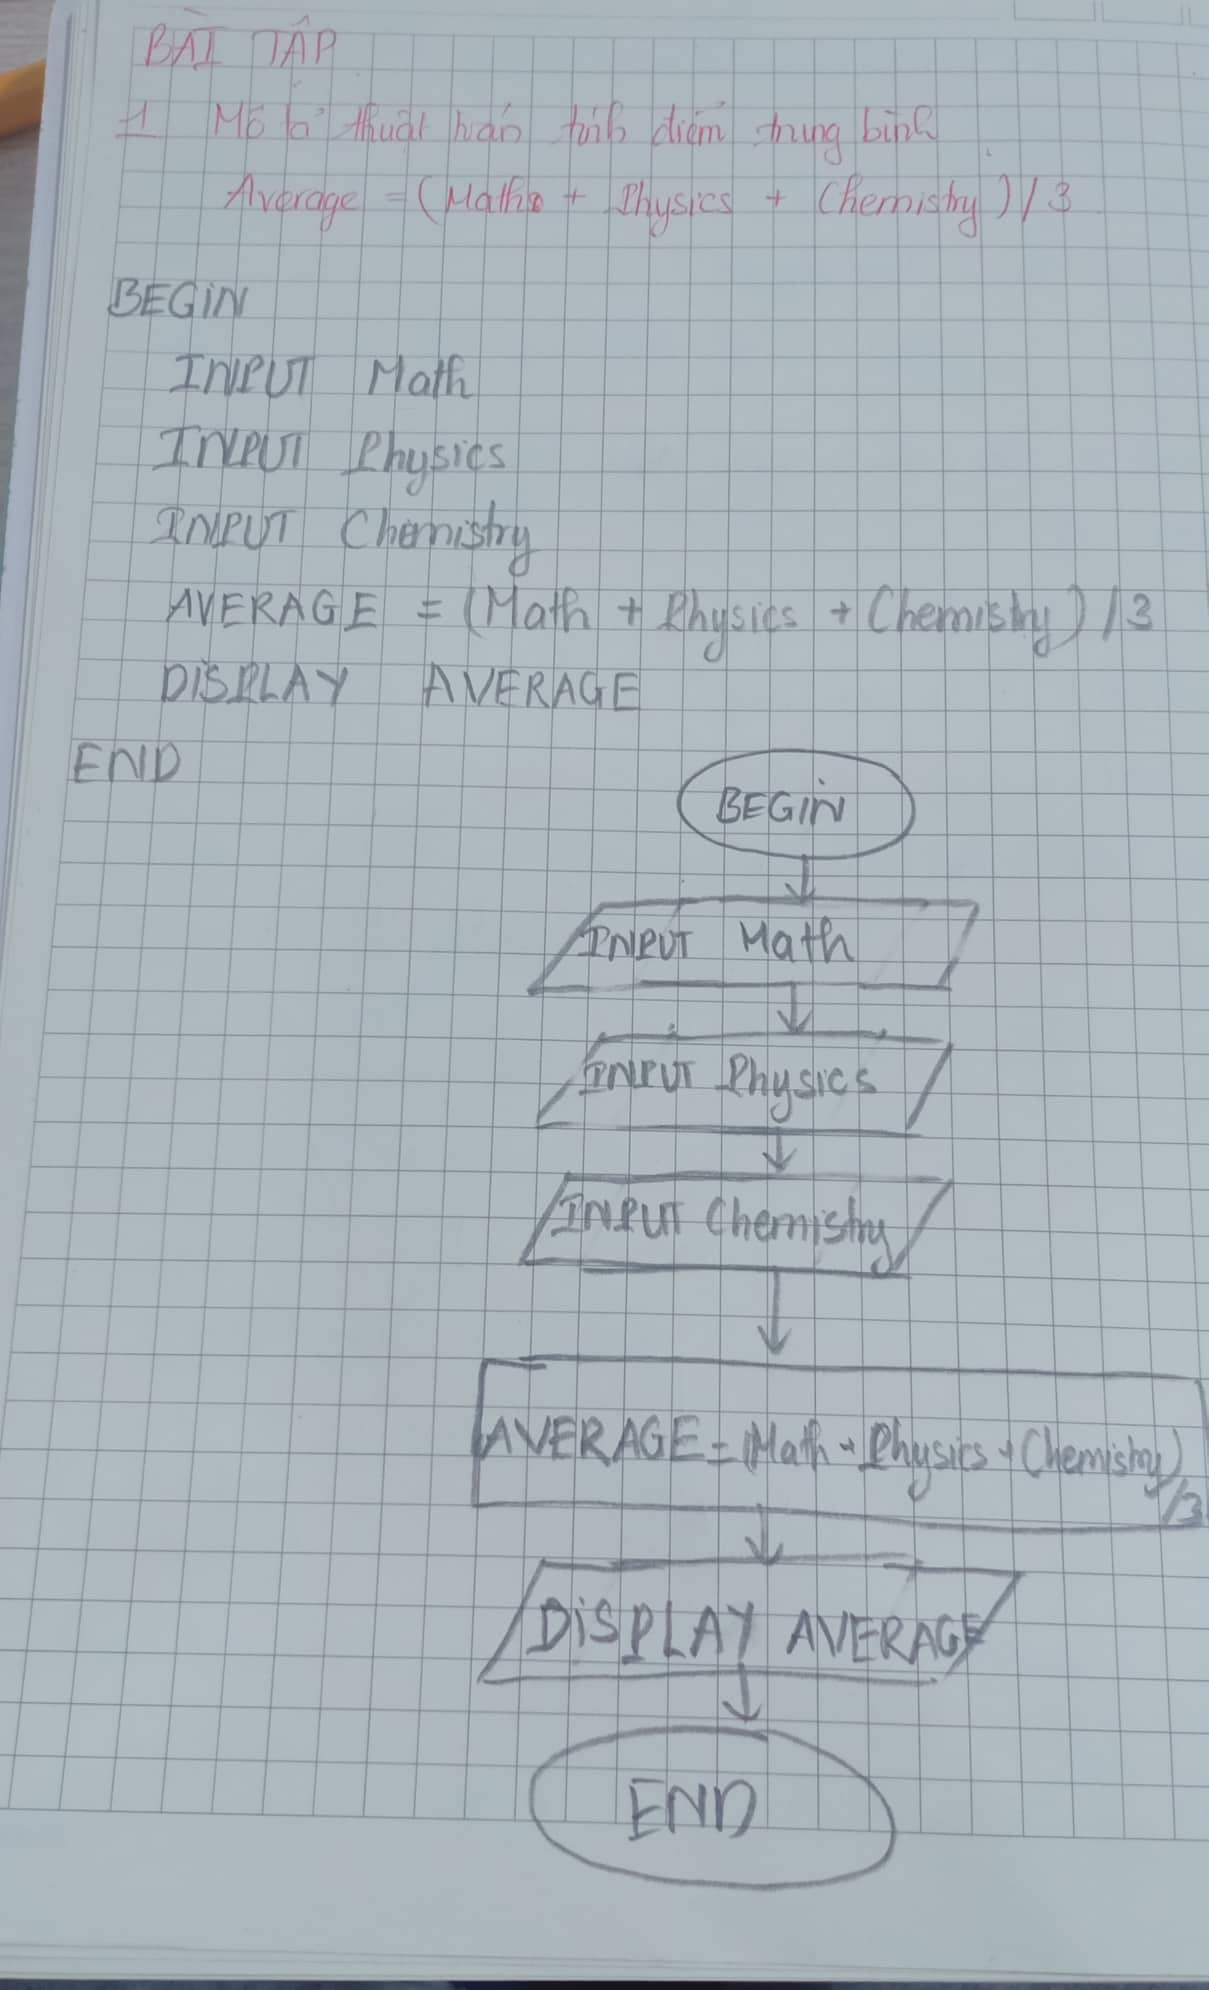 BÀI TẬP
1 Mô tả thuật toán tính điểm trung bình
Average = (Math + Physics + Chemistry) / 3
BEGIN
INPUT Math
INPUT Physics
INPUT Chemistry
AVERAGE = (Math + Physics + Chemistry) / 3
DISPLAY AVERAGE
END
BEGIN
INPUT Math
INPUT Physics
INPUT Chemistry
AVERAGE = (Math + Physics + Chemistry)
/3
DISPLAY AVERAGE
END